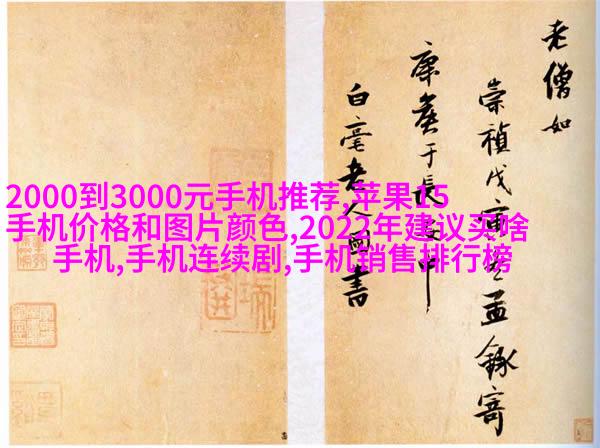 2000到3000元手机推荐,苹果15
手机价格和图片颜色,2023年建议买啥
手机,手机连续剧,手机销售排行榜
老僧如
崇禎戊寅孟錄寄
康侯于長中
白毫老人書